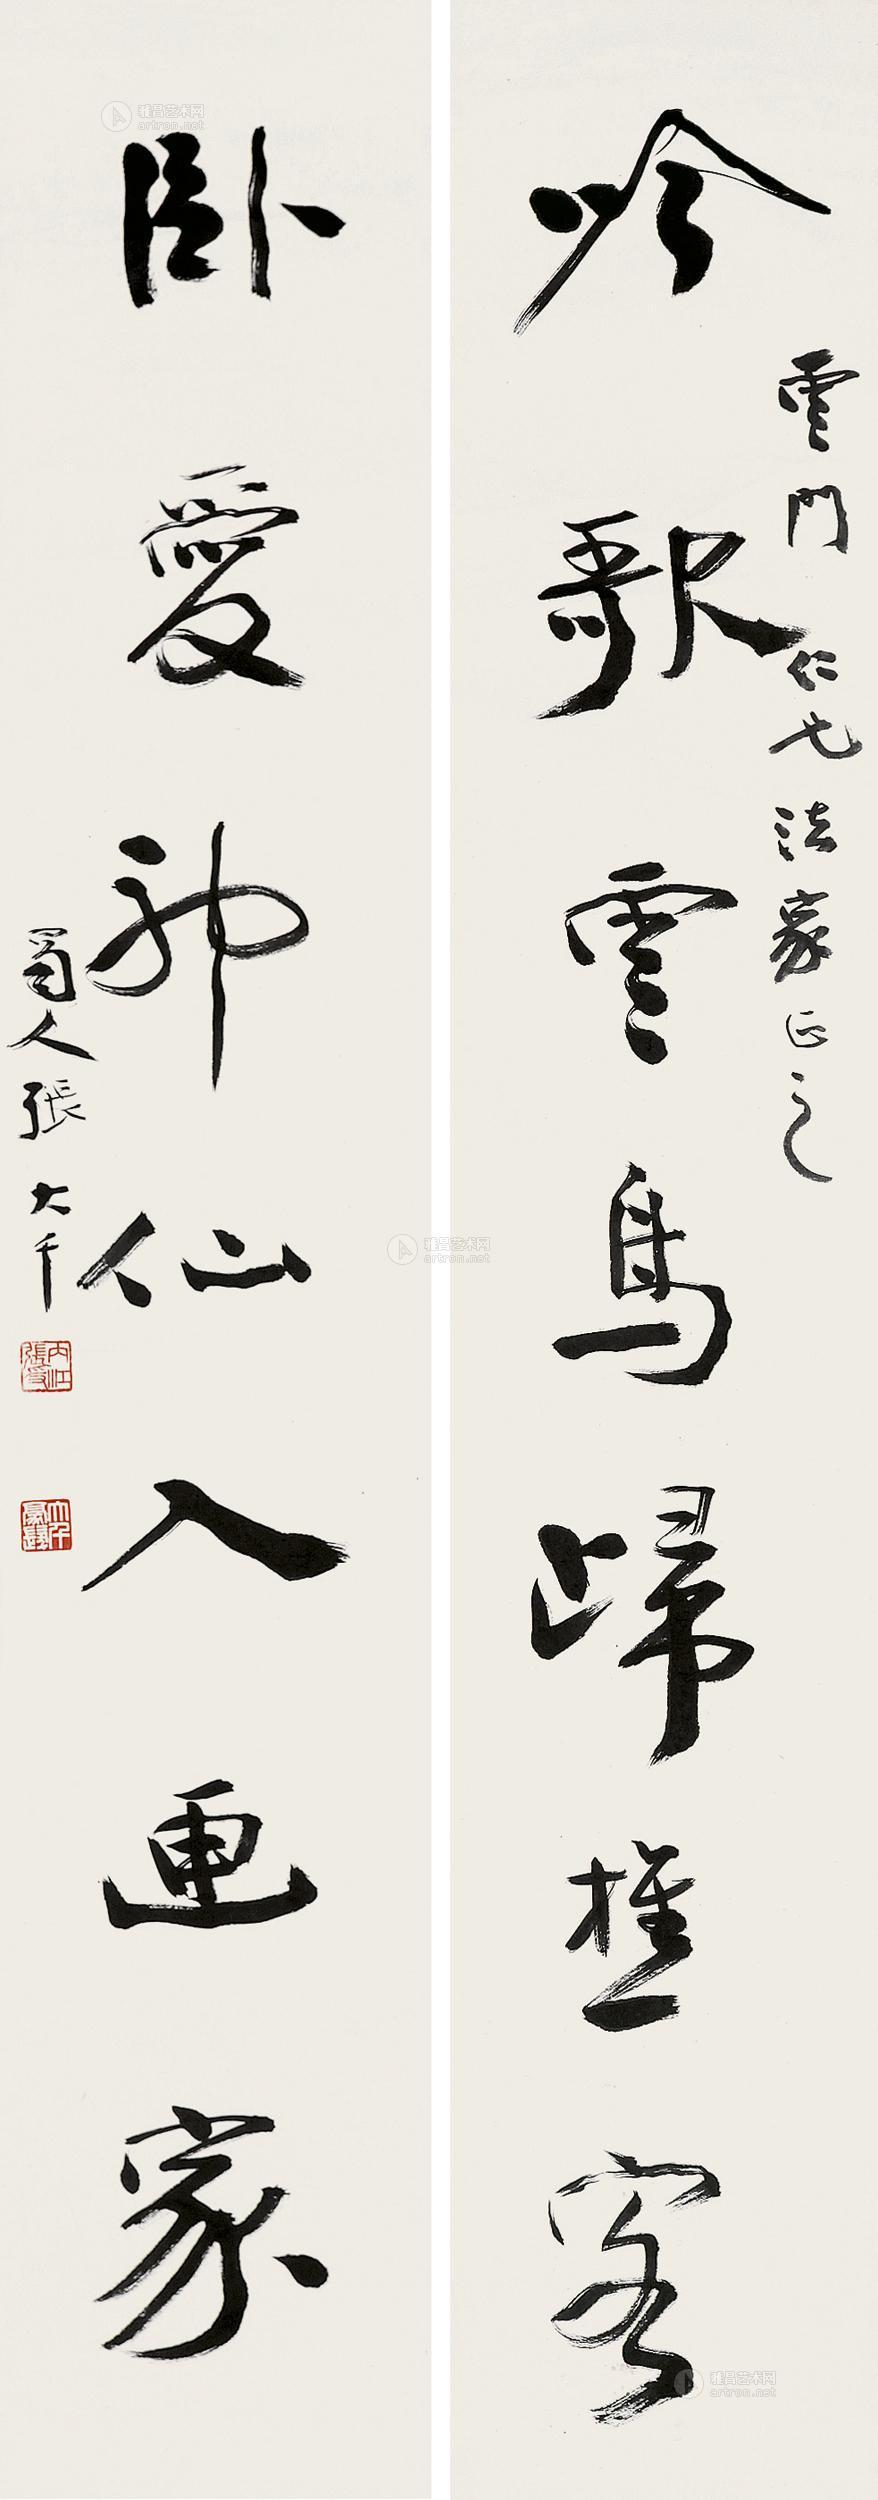 雲門仁兄法家正之
吟歌雲鳥歸樵客
臥愛神仙入畫家
蜀人張大千
內江張爰
大千豪髮
雅昌艺术网
artron.net
雅昌艺术网
artron.net
雅昌艺术网
artron.net